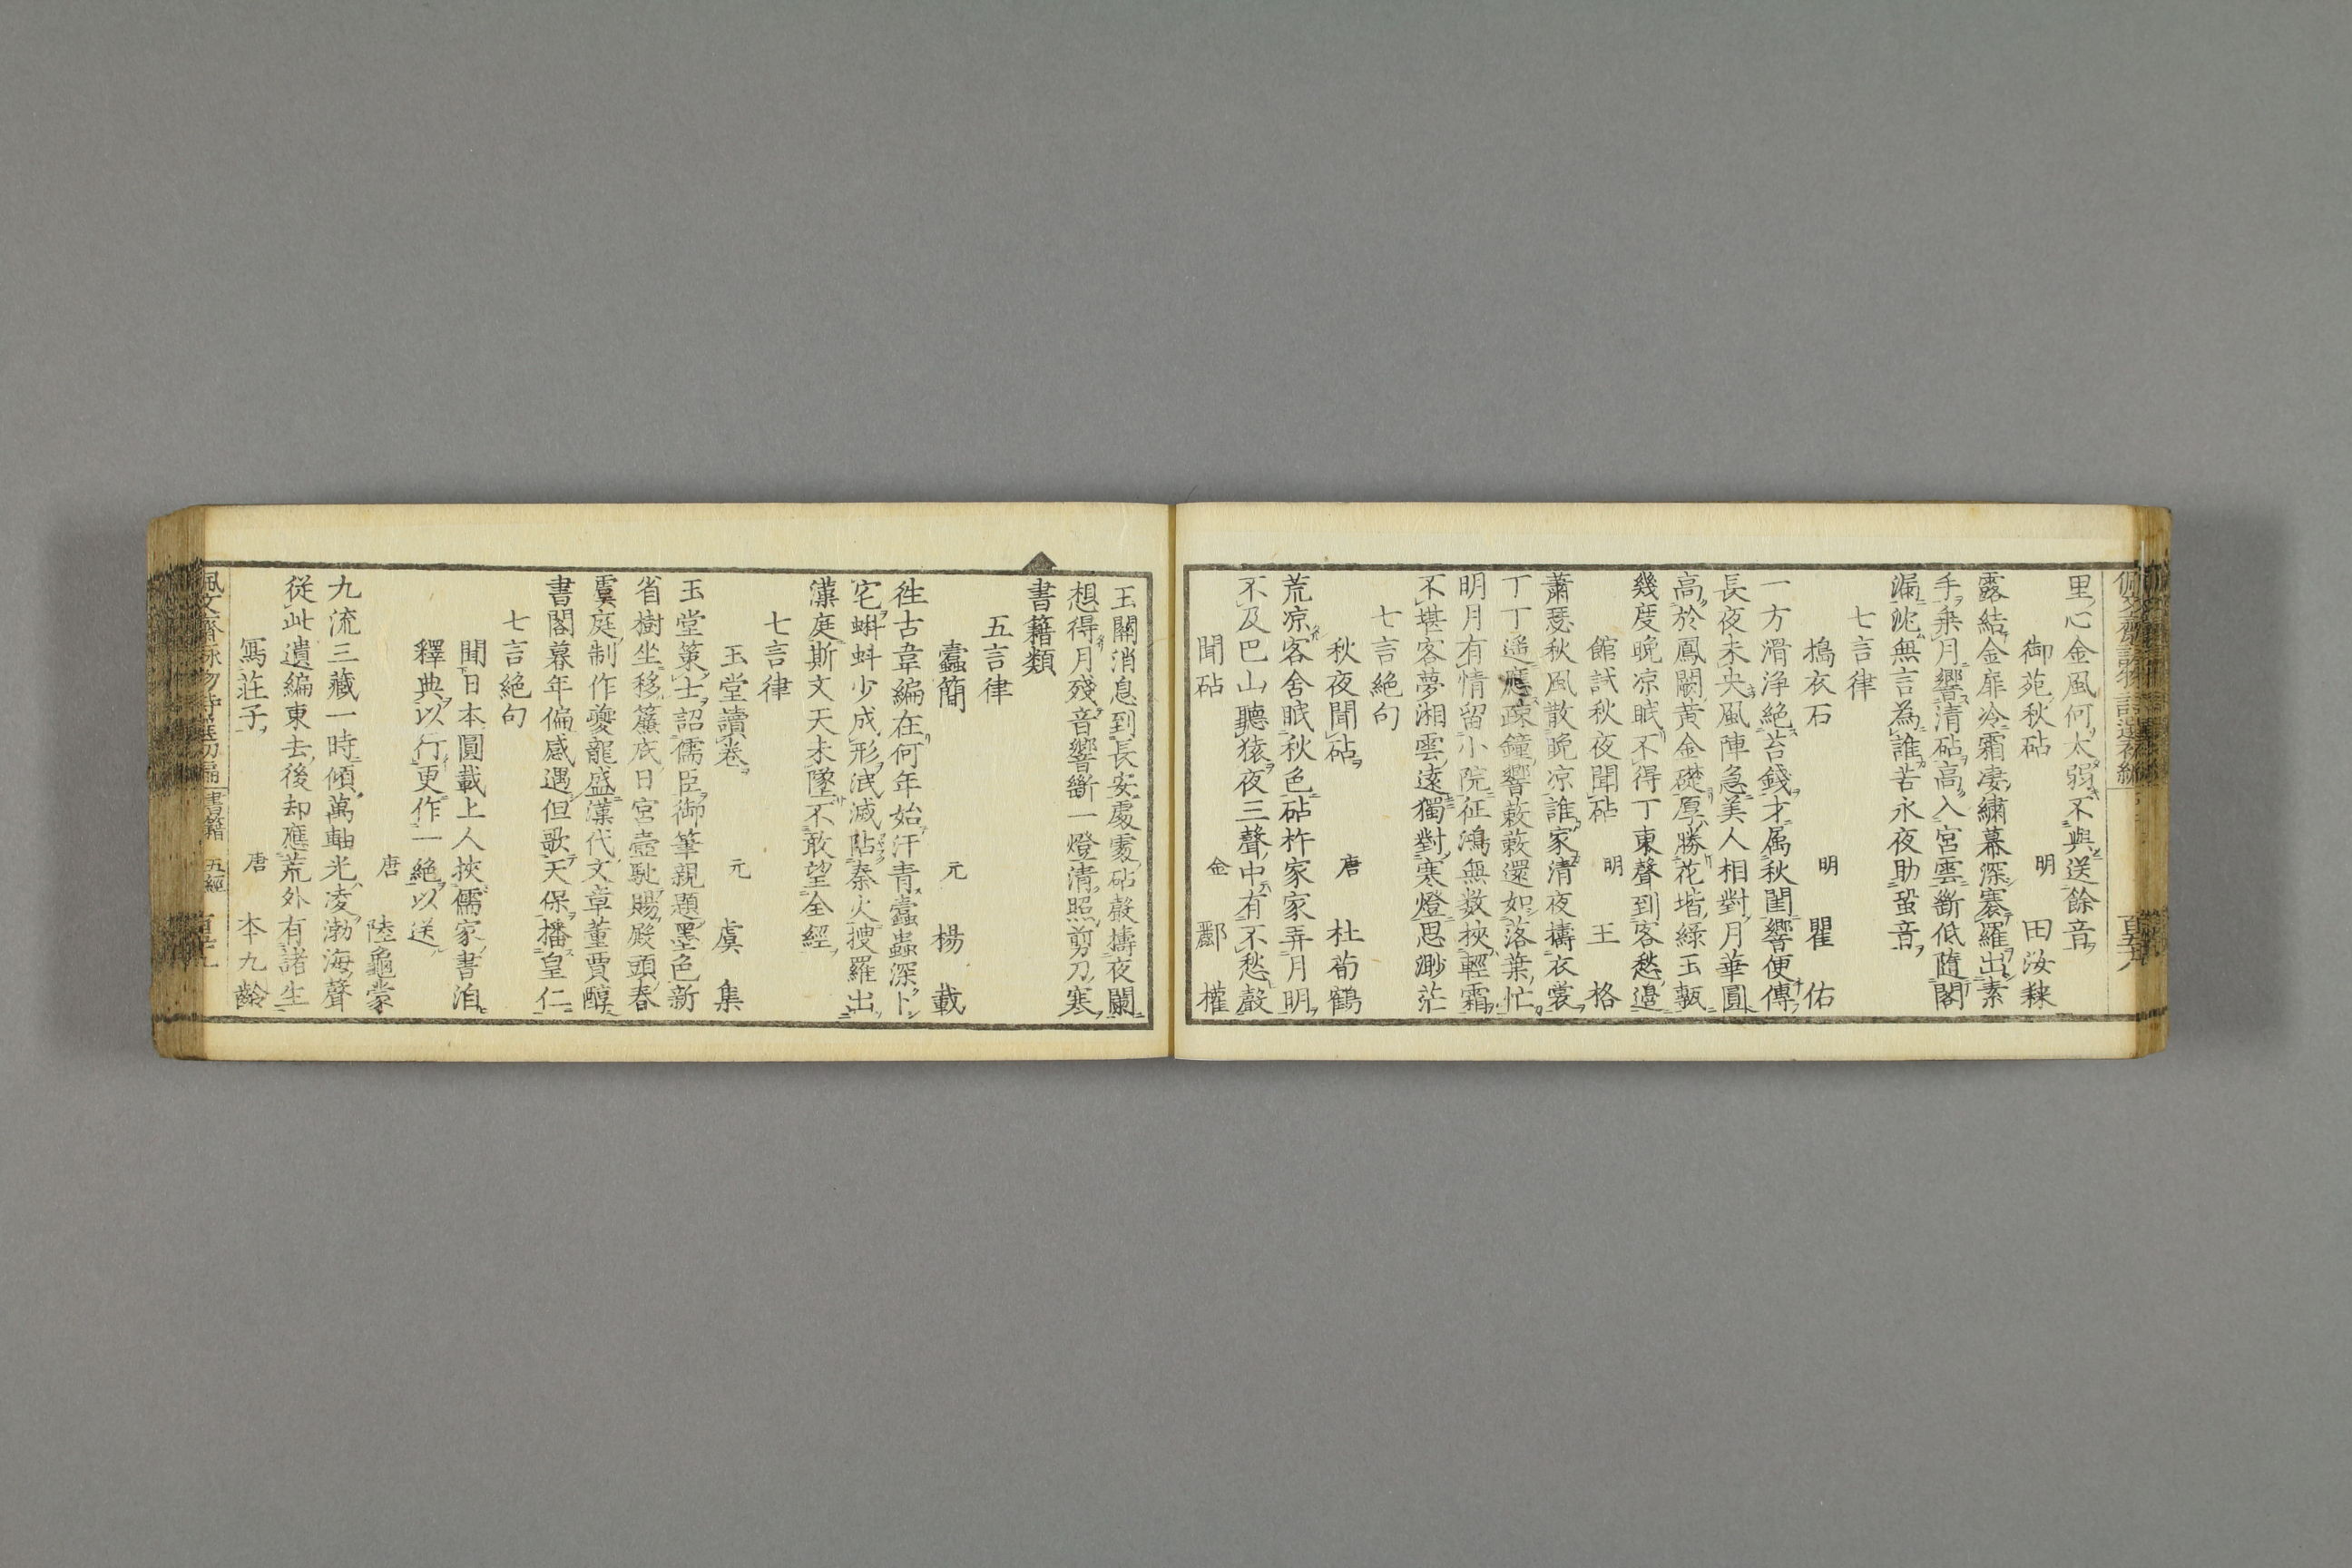 里心金風何太弱不與送餘音
御苑秋砧 明 田汝𫅗
露結金扉冷霜凄繍幕深褰羅出素
手乗月響清砧高入宮雲斷低隨閣
漏沈無言為誰苦永夜助蛩音
七言律
搗衣石 明 瞿佑
一方滑浄絶苔錢才属秋閨響便傳
長夜未央風陣急美人相對月華圓
高於鳳闕黄金礎厚勝花堦緑玉甎
幾度晩凉眠不得丁東聲到客愁邉
館試秋夜聞砧 明 王格
蕭瑟秋風散晩凉誰家清夜擣衣裳
丁丁遥應疎鐘響蔌蔌還如落葉忙
明月有情留小院征鴻無数挾輕霜
不堪客夢湘雲遠獨對寒燈思渺茫
七言絶句
秋夜聞砧 唐 杜荀鶴
荒凉客舎眠秋色砧杵家家弄月明
不及巴山聽猿夜三聲中有不愁聲
聞砧 金 酈權
玉關消息到長安處處砧聲擣夜闌
想得月殘音響斷一燈清照剪刀寒
書籍類
五言律
蠧簡 元 楊載
徃古韋編在何年始汗青蠧蟲深卜
宅蝌蚪少成形泯滅阽秦火捜羅出
漢庭斯文天未墜不敢望全經
七言律
玉堂讀巻 元 虞集
玉堂策士詔儒臣御筆親題墨色新
省樹坐移簾底日宮壺馳賜殿頭春
虞庭制作夔龍盛漢代文章董賈醇
書閣暮年偏感遇但歌天保播皇仁
七言絶句
聞日本圓載上人挾儒家書洎
釋典以行更作一絶以送
唐 陸龜蒙
九流三藏一時傾萬軸光凌渤海聲
従此遺編東去後却應荒外有諸生
寫荘子 唐 本九齢
書籍 五經